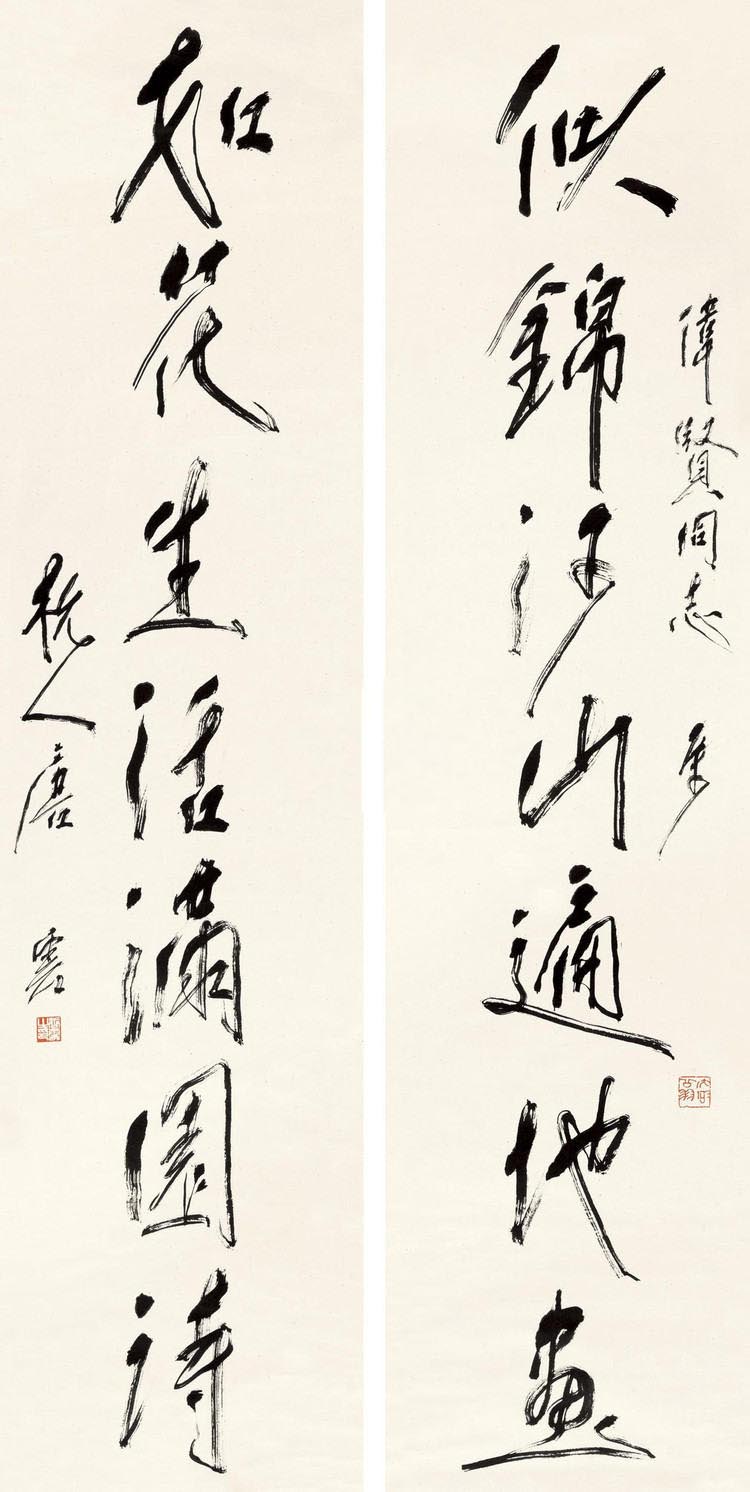 偉賢同志
似錦河山遍地畫
如花生活滿園詩
杭人唐雲